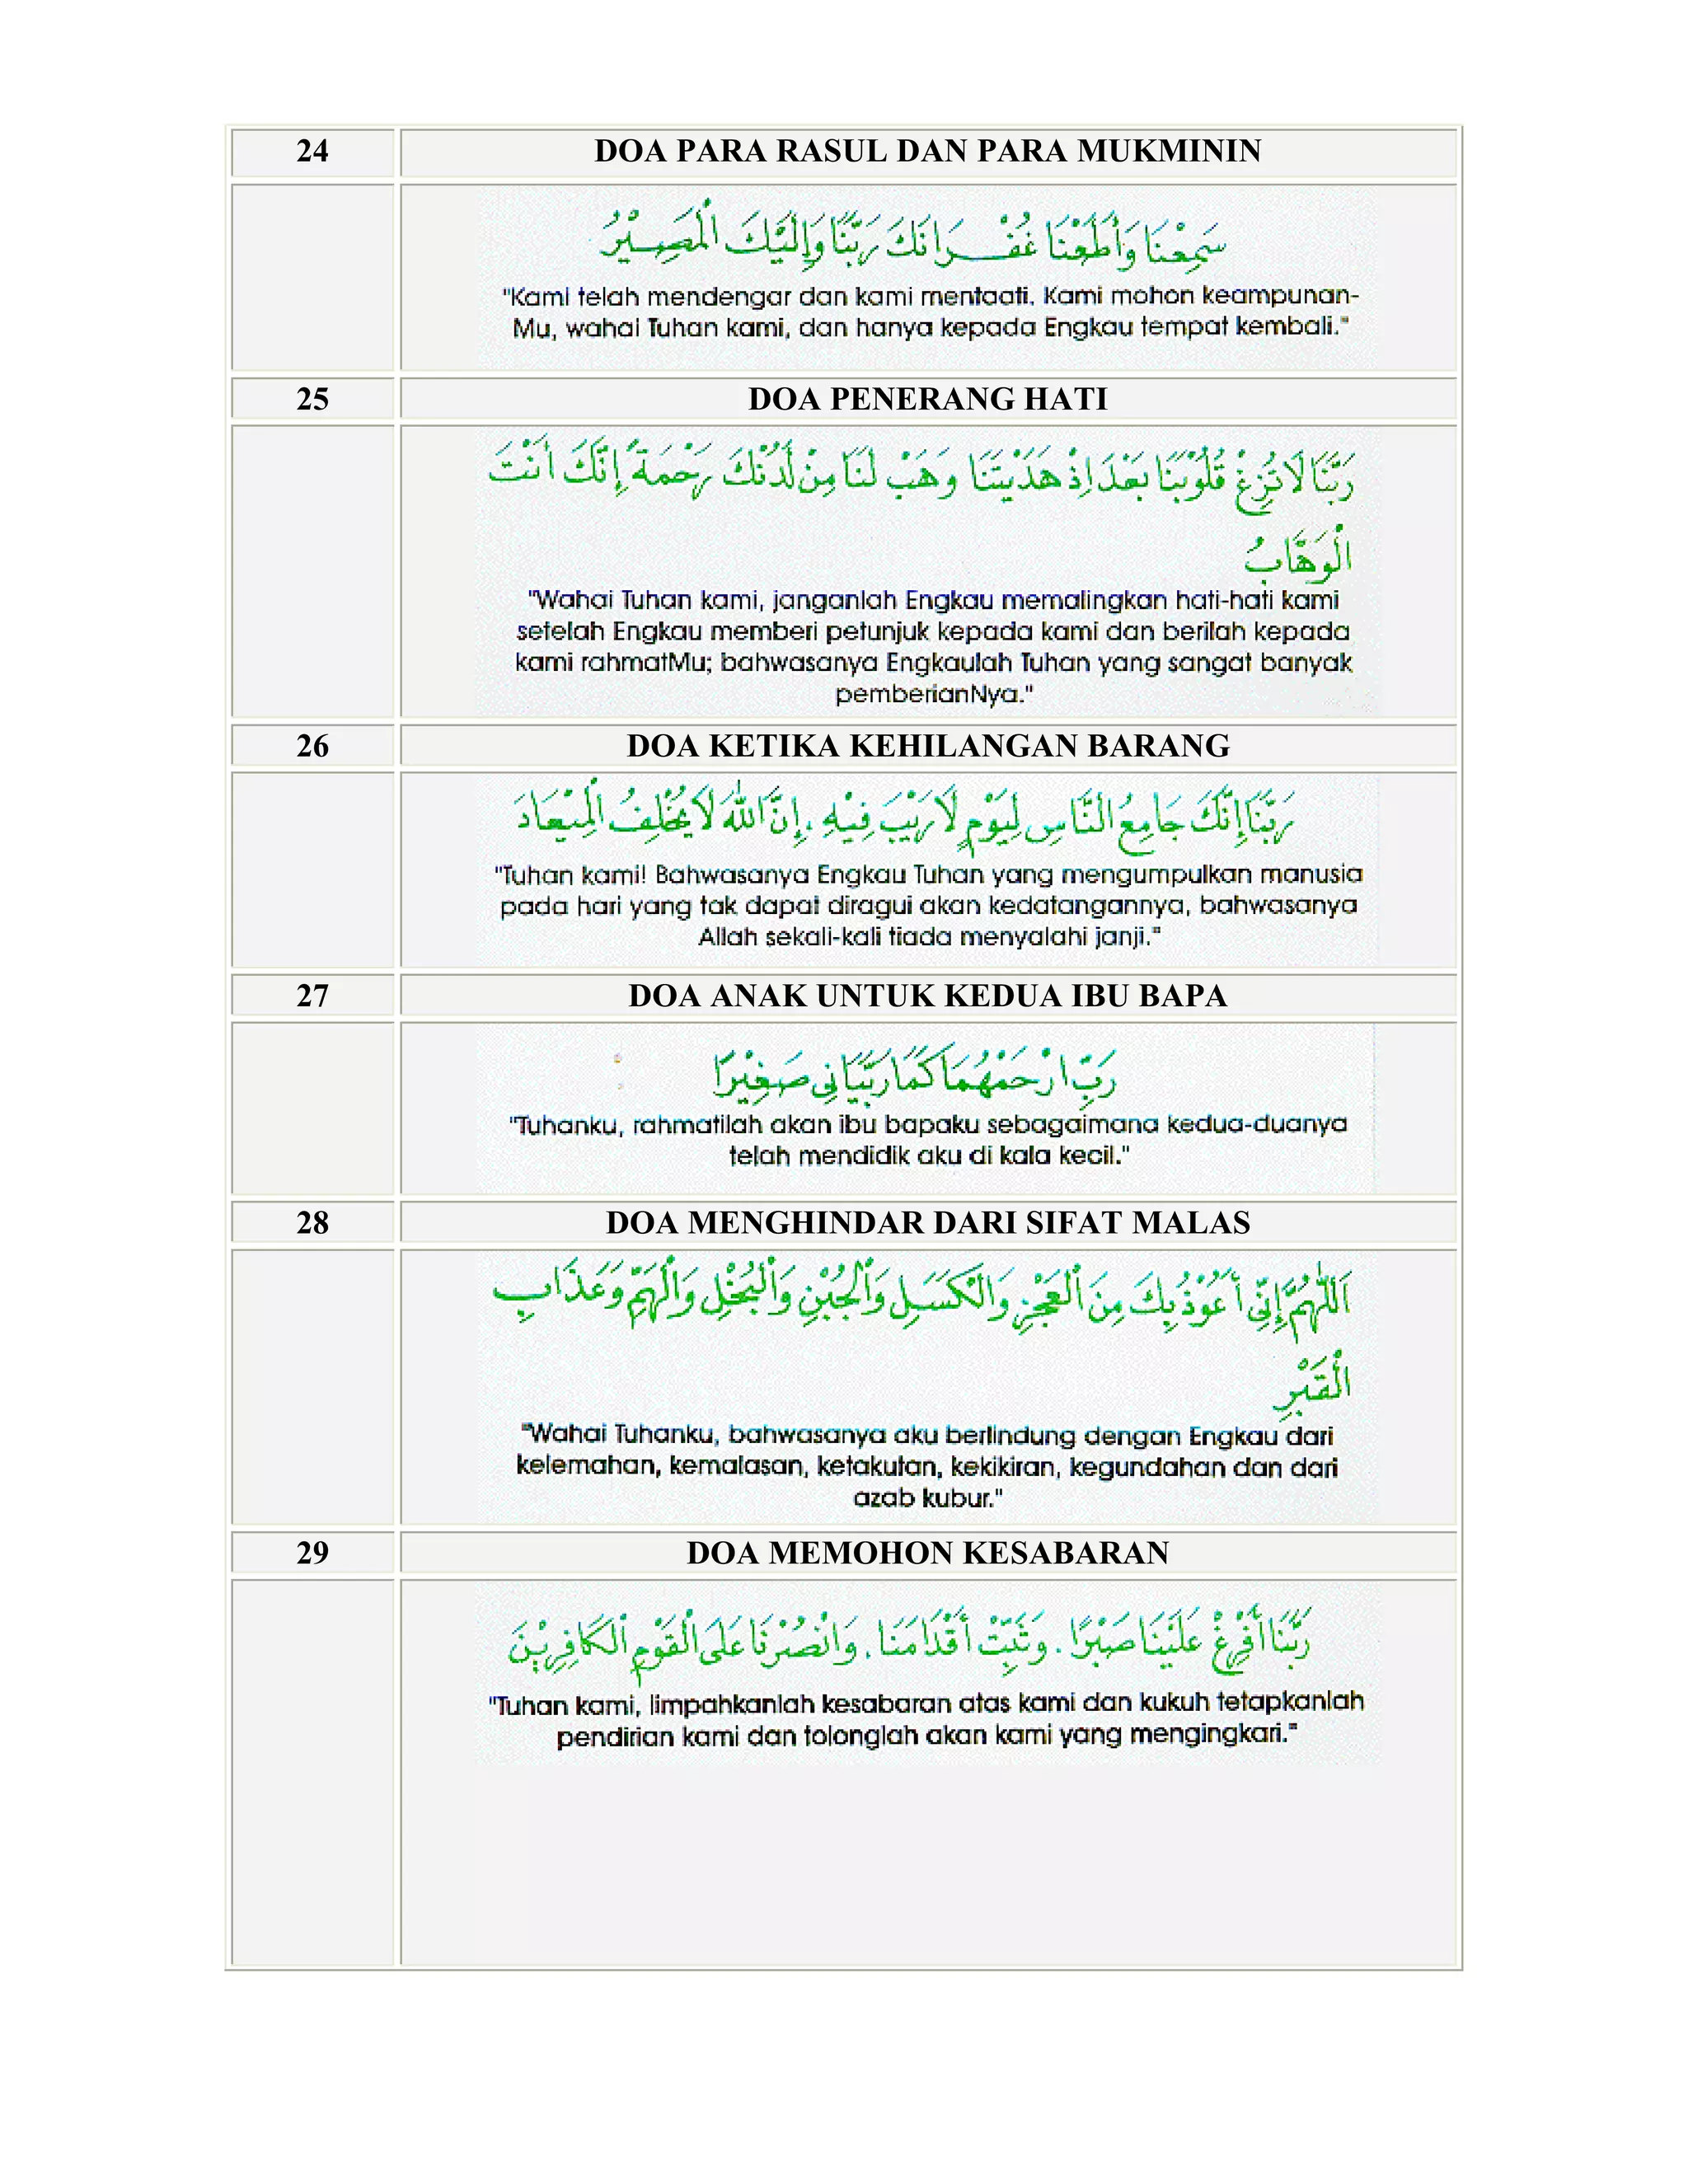 24
DOA PARA RASUL DAN PARA MUKMININ
سَمِعْنَا وَأَطَعْنَا غُفْرَانَكَ رَبَّنَا وَإِلَيْكَ الْمَصِيْرُ
"Kami telah mendengar dan kami mentaati. Kami mohon keampunan-
Mu, wahai Tuhan kami, dan hanya kepada Engkau tempat kembali."
25
DOA PENERANG HATI
رَبَّنَا لَا تُزِغْ قُلُوْبَنَا بَعْدَ اِذْ هَدَيْتَنَا وَهَبْ لَنَا مِنْ لَدُنْكَ رَحْمَةً إِنَّكَ أَنْتَ
الْوَهَّابُ
"Wahai Tuhan kami, janganlah Engkau memalingkan hati-hati kami
setelah Engkau memberi petunjuk kepada kami dan berilah kepada
kami rahmatMu; bahwasanya Engkaulah Tuhan yang sangat banyak
pemberianNya."
26
DOA KETIKA KEHILANGAN BARANG
رَبَّنَا إِنَّكَ جَامِعُ النَّاسِ لِيَوْمٍ لَا رَيْبَ فِيْهِ . إِنَّ اللهَ لَا يُخْلِفُ الْمِيْعَادَ
"Tuhan kami! Bahwasanya Engkau Tuhan yang mengumpulkan manusia
pada hari yang tak dapat diragui akan kedatangannya, bahwasanya
Allah sekali-kali tiada menyalahi janji."
27
DOA ANAK UNTUK KEDUA IBU BAPA
رَبِّ ارْحَمْهُمَا كَمَا رَبَّيَانِى صَغِيْرًا
"Tuhanku, rahmatilah akan ibu bapaku sebagaimana kedua-duanya
telah mendidik aku di kala kecil."
28
DOA MENGHINDAR DARI SIFAT MALAS
اَللّٰهُمَّ إِنِّى أَعُوْذُ بِكَ مِنَ الْعَجْزِ وَالْكَسَلِ وَالْجُبْنِ وَالْبُخْلِ وَالْهَمِّ وَعَذَابِ
الْقَبْرِ
"Wahai Tuhanku, bahwasanya aku berlindung dengan Engkau dari
kelemahan, kemalasan, ketakutan, kekikiran, kegundahan dan dari
azab kubur."
29
DOA MEMOHON KESABARAN
رَبَّنَا أَفْرِغْ عَلَيْنَا صَبْرًا . وَثَبِّتْ أَقْدَامَنَا . وَانْصُرْنَا عَلَى الْقَوْمِ الْكَافِرِيْنَ
"Tuhan kami, limpahkanlah kesabaran atas kami dan kukuh tetapkanlah
pendirian kami dan tolonglah akan kami yang mengingkari."